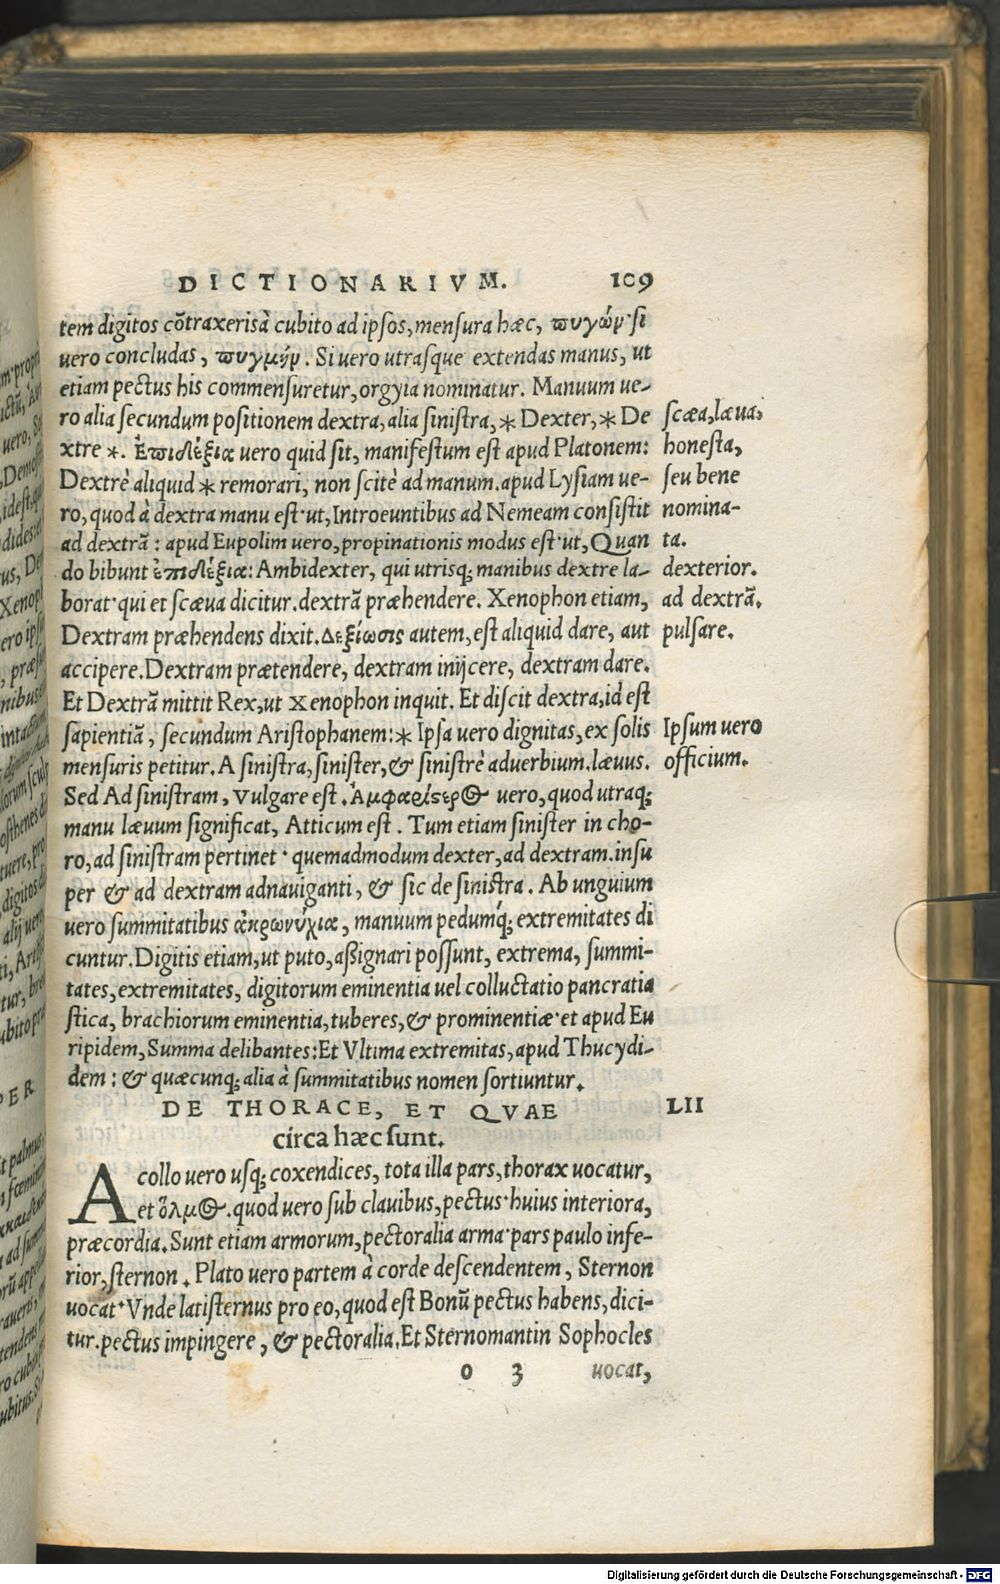 DICTIONARIVM. 109
tem digitos cõtraxeris à cubito ad ipsos, mensura hæc, πυγών· si
vero concludas, πυγμήν. Si vero utrasque extendas manus, ut
etiam pectus his commensuretur, orgyia nominatur. Manuum ue-
ro alia secundum positionem dextra, alia sinistra, * Dexter, * De
xtre *. Ἐπιδέξια vero quid sit, manifestum est apud Platonem:
Dextrè aliquid * remorari, non scitè ad manum. apud Lysiam ue-
ro, quod à dextra manu est· ut, Introeuntibus ad Nemeam consistit
ad dextrã: apud Eupolim uero, propinationis modus est· ut, Quan
do bibunt ἐπιδέξια: Ambidexter, qui utrisq; manibus dextre la-
borat· qui et scæua dicitur. dextrã præhendere. Xenophon etiam,
Dextram præhendens dixit. Δεξίωσις autem, est aliquid dare, aut
accipere. Dextram prætendere, dextram inijcere, dextram dare.
Et Dextrã mittit Rex, ut Xenophon inquit. Et discit dextra, id est
sapientiã, secundum Aristophanem: * Ipsa uero dignitas, ex solis
mensuris petitur. A sinistra, sinister, & sinistrè aduerbium. læuus.
Sed Ad sinistram, Vulgare est. Ἀμφαρίστερος uero, quod utraq;
manu læuum significat, Atticum est. Tum etiam sinister in cho-
ro, ad sinistram pertinet· quemadmodum dexter, ad dextram. insu
per & ad dextram adnauiganti, & sic de sinistra. Ab unguium
uero summitatibus ἀκρωνύχια, manuum pedumq́; extremitates di
cuntur. Digitis etiam, ut puto, aßignari possunt, extrema, summi-
tates, extremitates, digitorum eminentia uel colluctatio pancratia
stica, brachiorum eminentia, tuberes, & prominentiæ· et apud Eu
ripidem, Summa delibantes: Et Vltima extremitas, apud Thucydi-
dem: & quæcunq; alia à summitatibus nomen sortiuntur.
scæa, læua,
honesta,
seu bene
nomina-
ta.
dexterior.
ad dextrã.
pulsare.
Ipsum uero
officium.
DE THORACE, ET QVAE LII
circa hæc sunt.
A collo uero usq; coxendices, tota illa pars, thorax uocatur,
et ὅλμος. quod uero sub clauibus, pectus· huius interiora,
præcordia. Sunt etiam armorum, pectoralia arma· pars paulo infe-
rior, sternon. Plato uero partem à corde descendentem, Sternon
uocat· Vnde latisternus pro eo, quod est Bonũ pectus habens, dici-
tur. pectus impingere, & pectoralia. Et Sternomantin Sophocles
o 3 uocat,
Digitalisierung gefördert durch die Deutsche Forschungsgemeinschaft - DFG